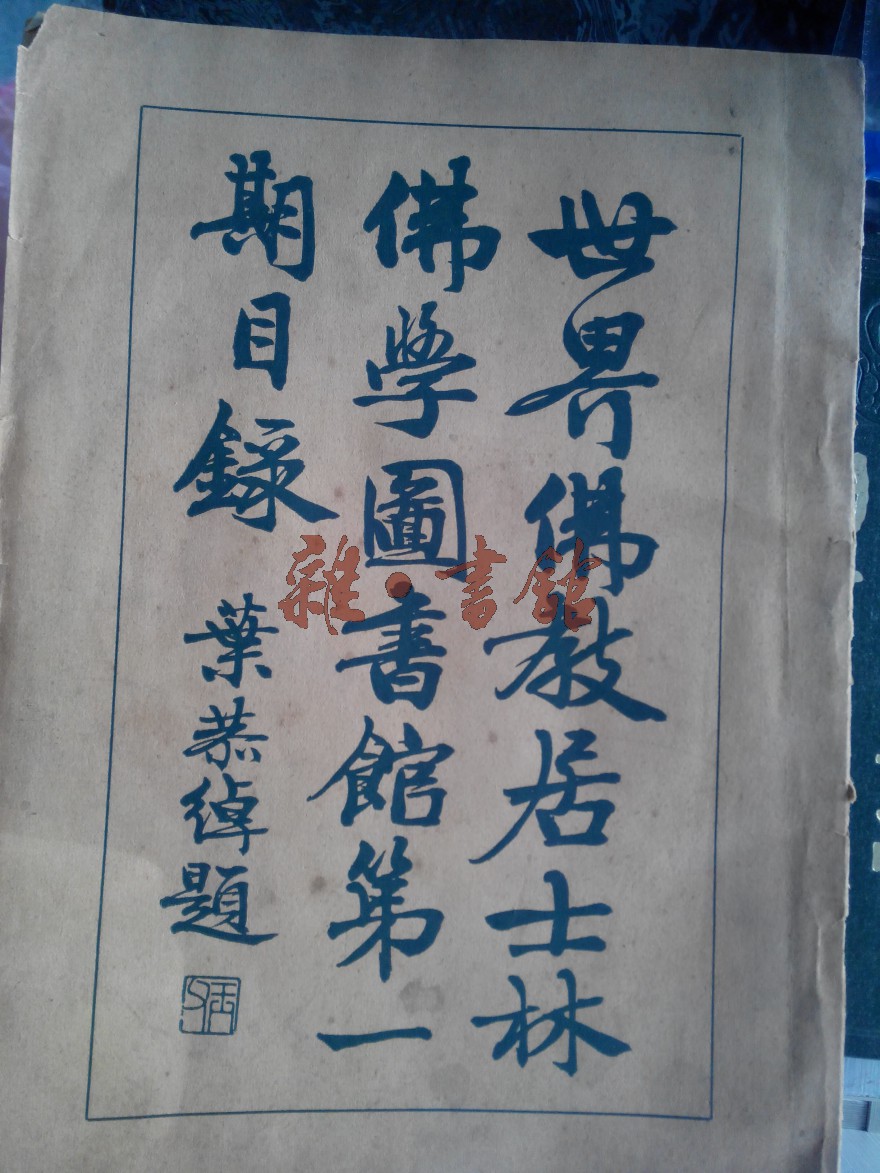 世界佛教居士林
佛學圖書館第一
期目錄
葉恭綽題
雜·書館